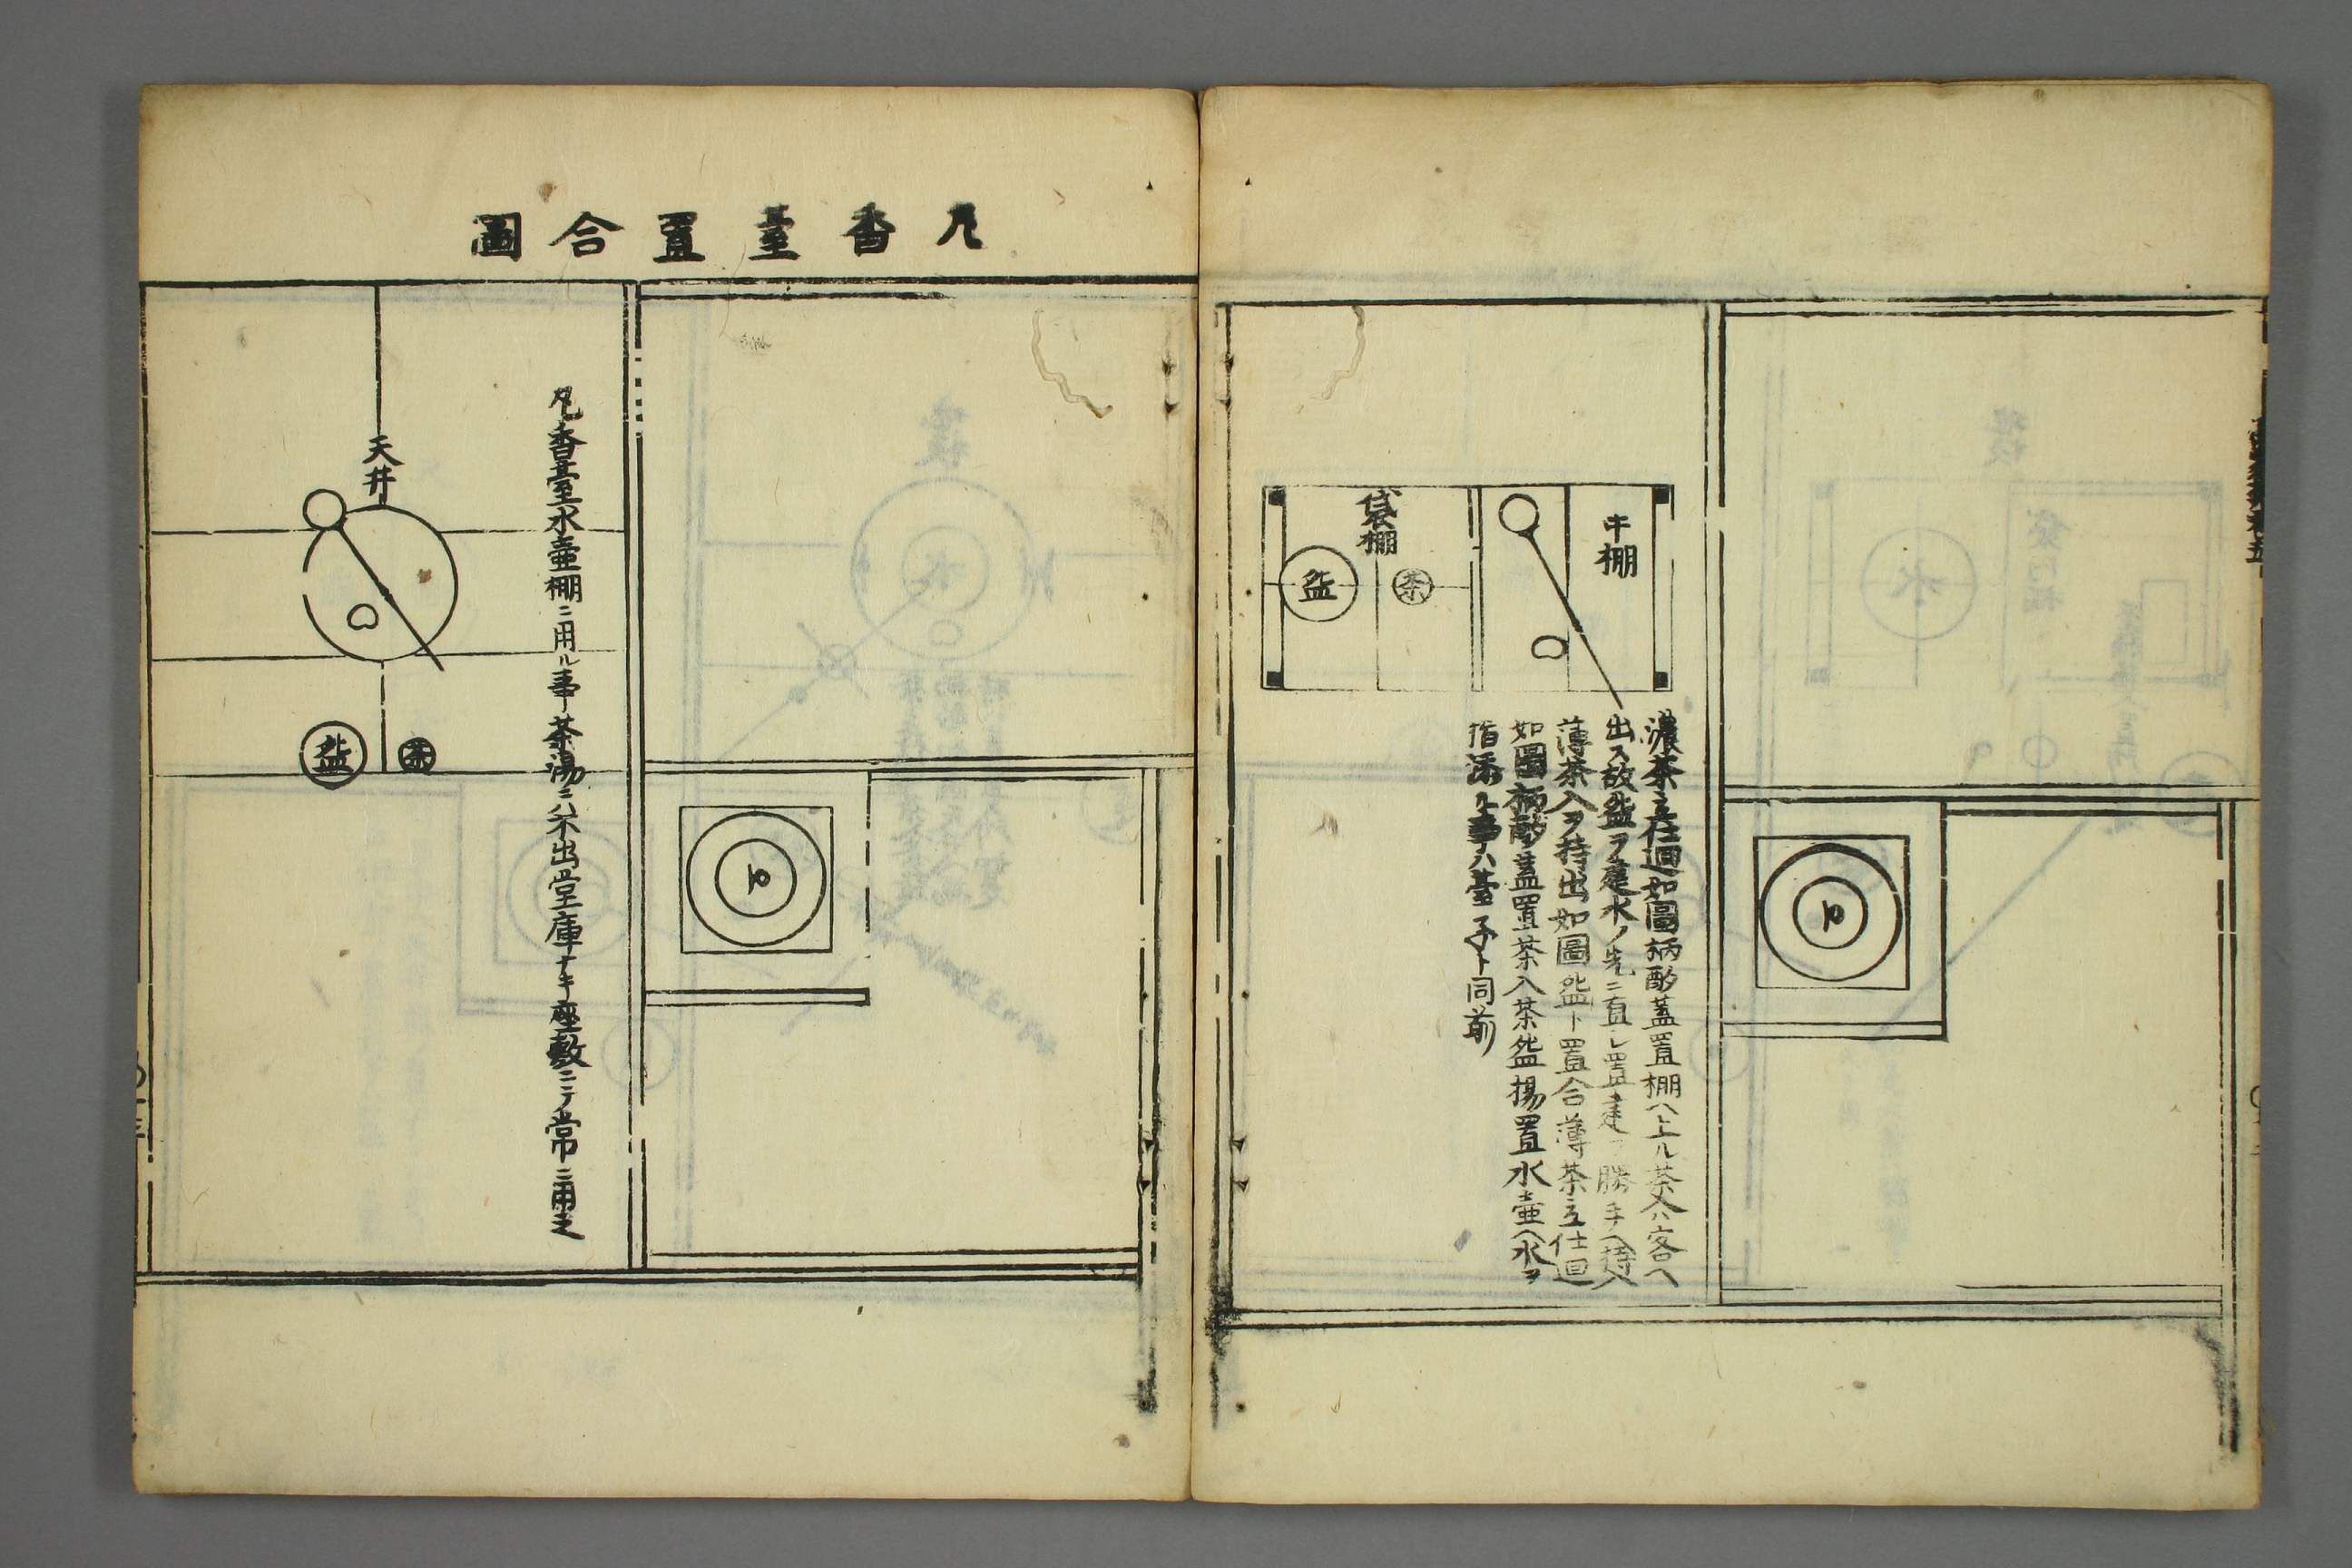 中棚
袋棚
茶
盌
濃茶立仕廻如圖柄酌蓋置棚ヘ上ル茶入ハ客ヘ
出ス故盌ヲ建水ノ先ニ直シ置建ヲ勝手ヘ持入
薄茶入ヲ持出如圖盌ト置合薄茶立仕廻
如圖柄酌蓋置茶入茶盌揚置水壷ヘ水ヲ
指添ル事ハ臺子ト同前
凡香臺置合圖
凡香臺水壷棚ニ用ル事茶湯ニハ不出堂庫ナキ座敷ニテ常ニ用之
天井
茶
盌